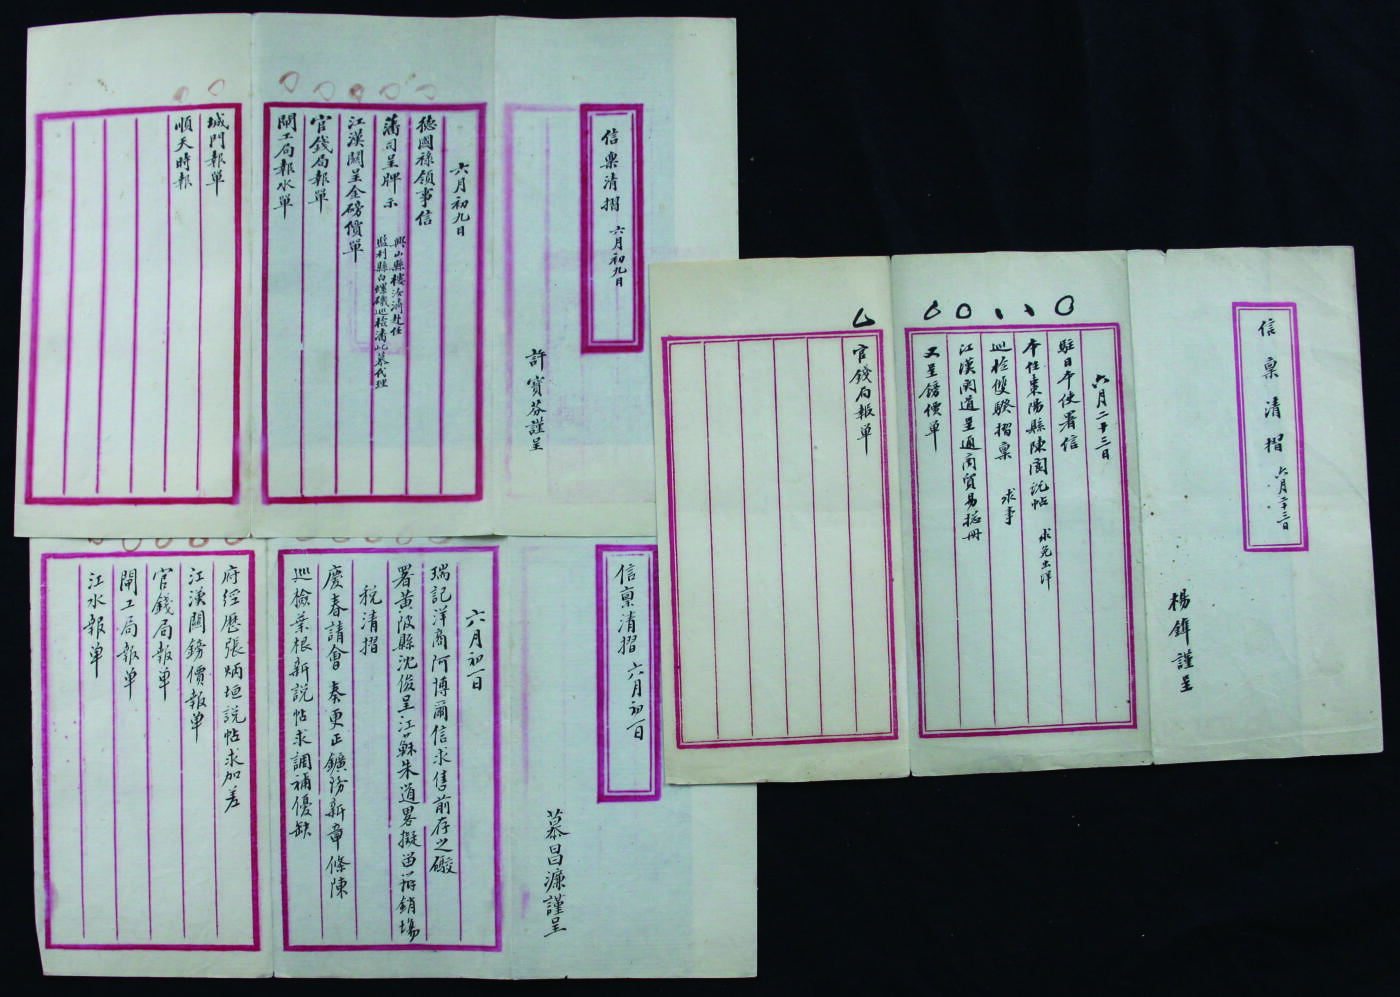 信稟清摺 六月初九日
許寶芬謹呈
六月初九日
德國祿領事信
藩司呈牌示
興山縣樓汝濟赴任
監利縣白螺磯巡檢潘兆基代理
江漢關呈金磅價單
官錢局報單
閘工局報水單
城門報單
順天時報
信稟清摺 六月初一日
慕昌濂謹呈
六月初一日
瑞記洋商阿博爾信求售前存之礮
署黃陂縣沈俊呈江蘇朱道畧擬苗莊銷塲
稅清摺
慶春請會奏更正鑛防新章條陳
巡檢葉根新說帖求調補優缺
府經歷張炳垣說帖求加差
江漢關鎊價報单
官錢局報单
閘工局報单
江水報单
信稟清摺 六月二十三日
楊鍕謹呈
六月二十三日
駐日本使署信
本任棗陽縣陳閎說帖 求免出洋
巡檢雙騤摺稟 求事
江漢関道呈通商貿易總冊
又呈鎊價单
官錢局報单